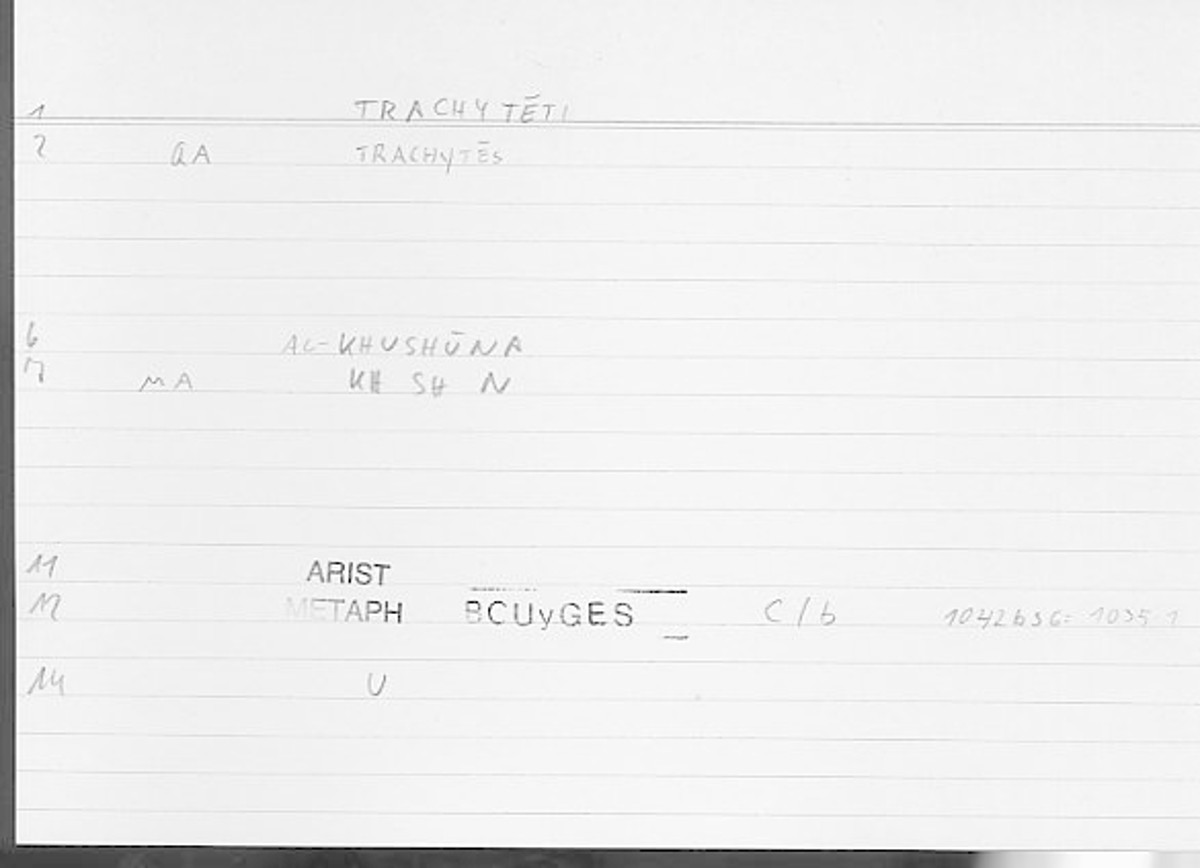 1 TRACHYTĒTI
2 aA TRACHYTĒS
6 AL-KHUSHŪNA
7 MA KH SH N
11 ARIST
12 METAPH BCUyGES C/b 1042b36= 1035.1
14 U